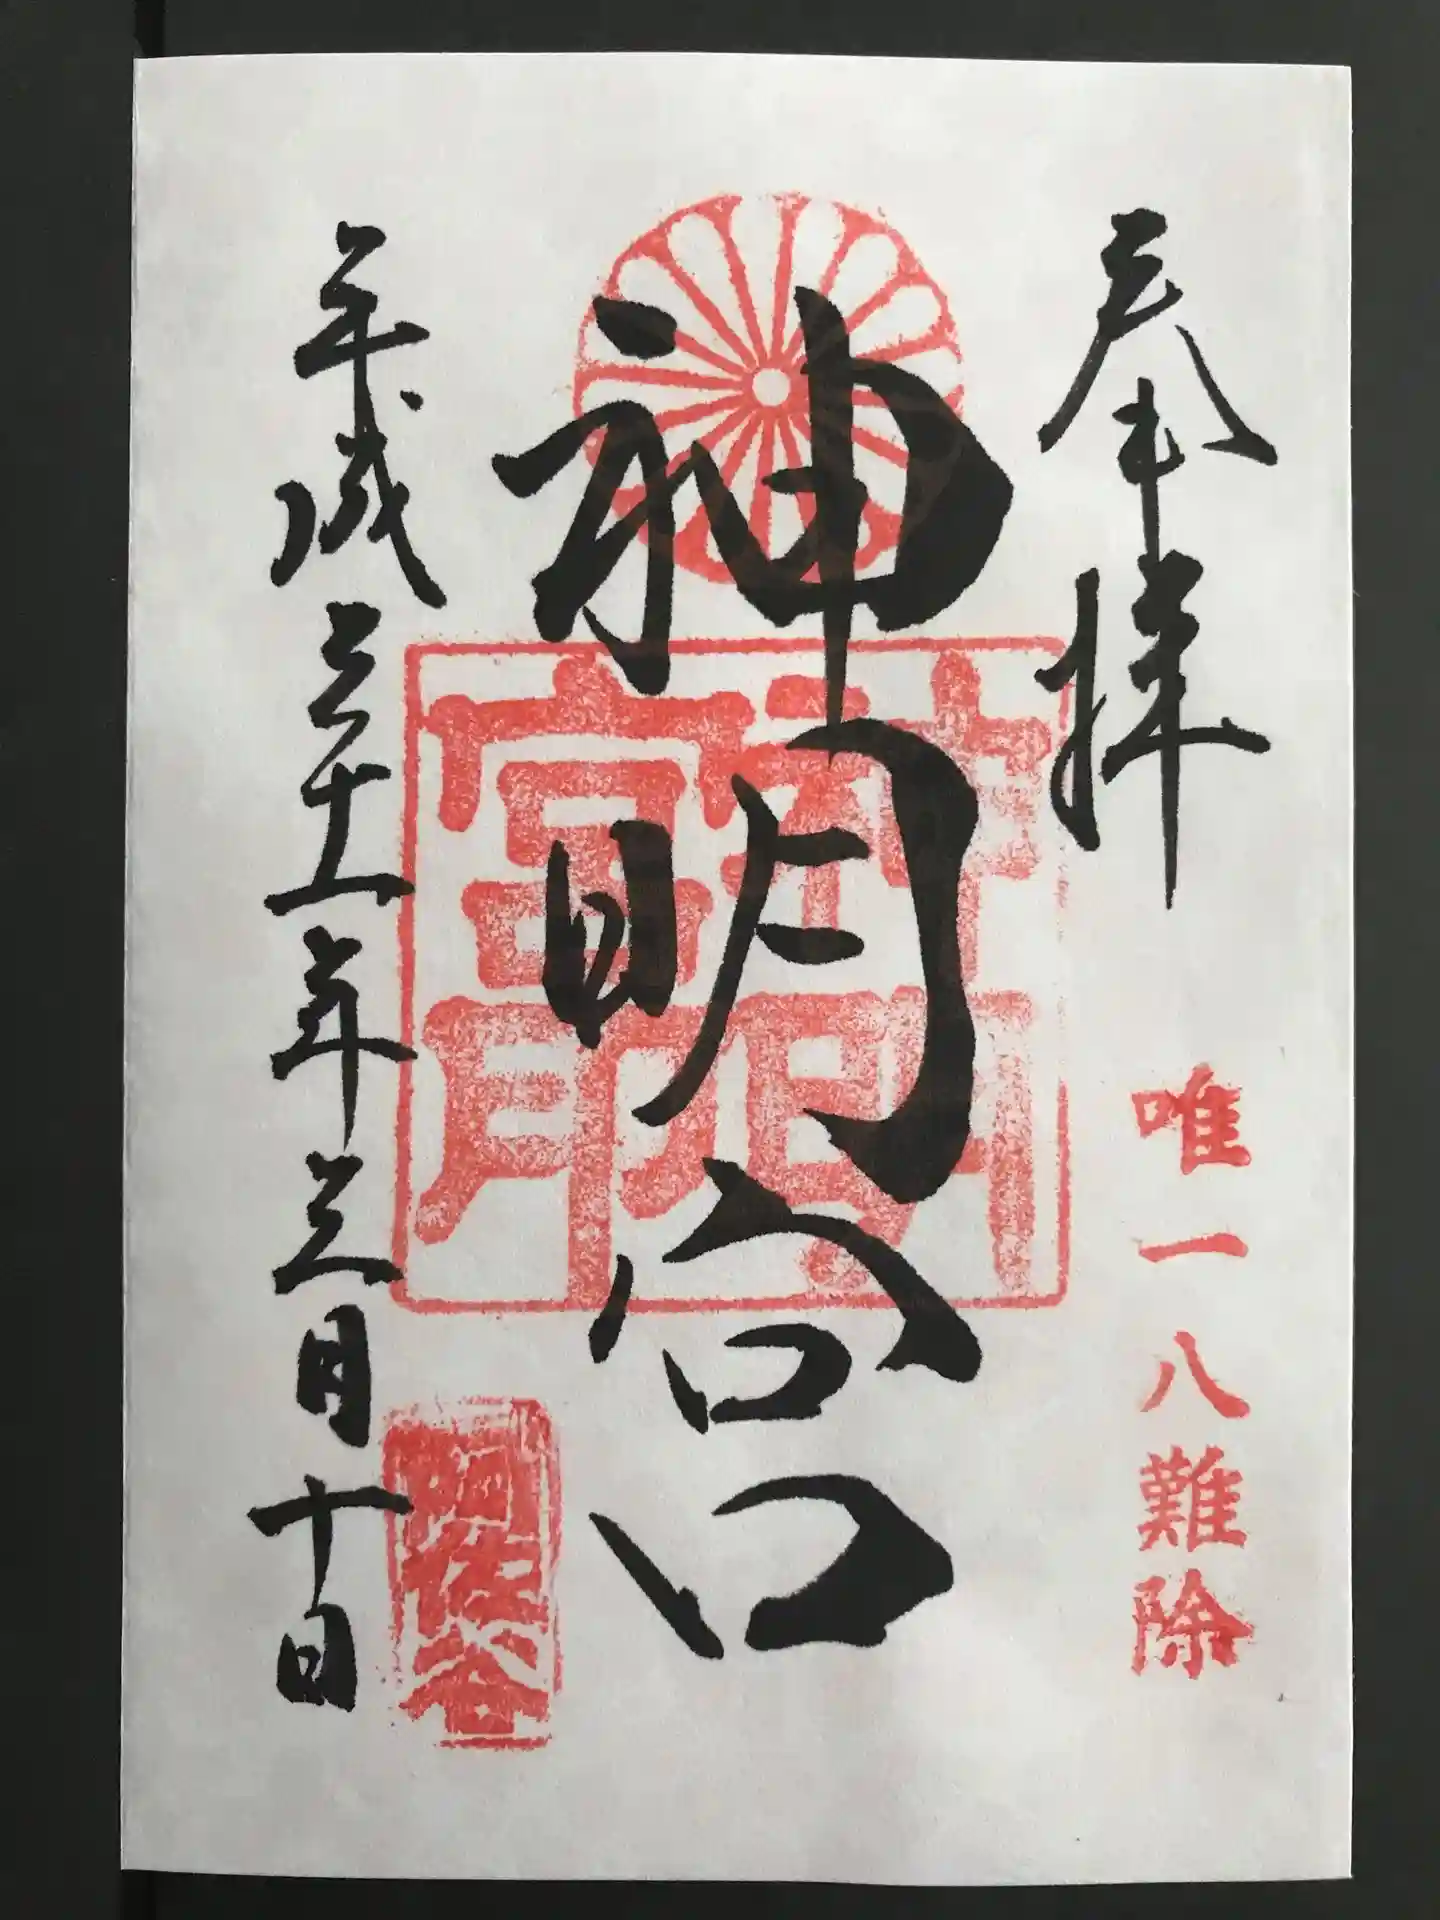 奉拝
唯一八難除
神明宮
神明
宮印
平成三十一年三月十日
阿佐谷